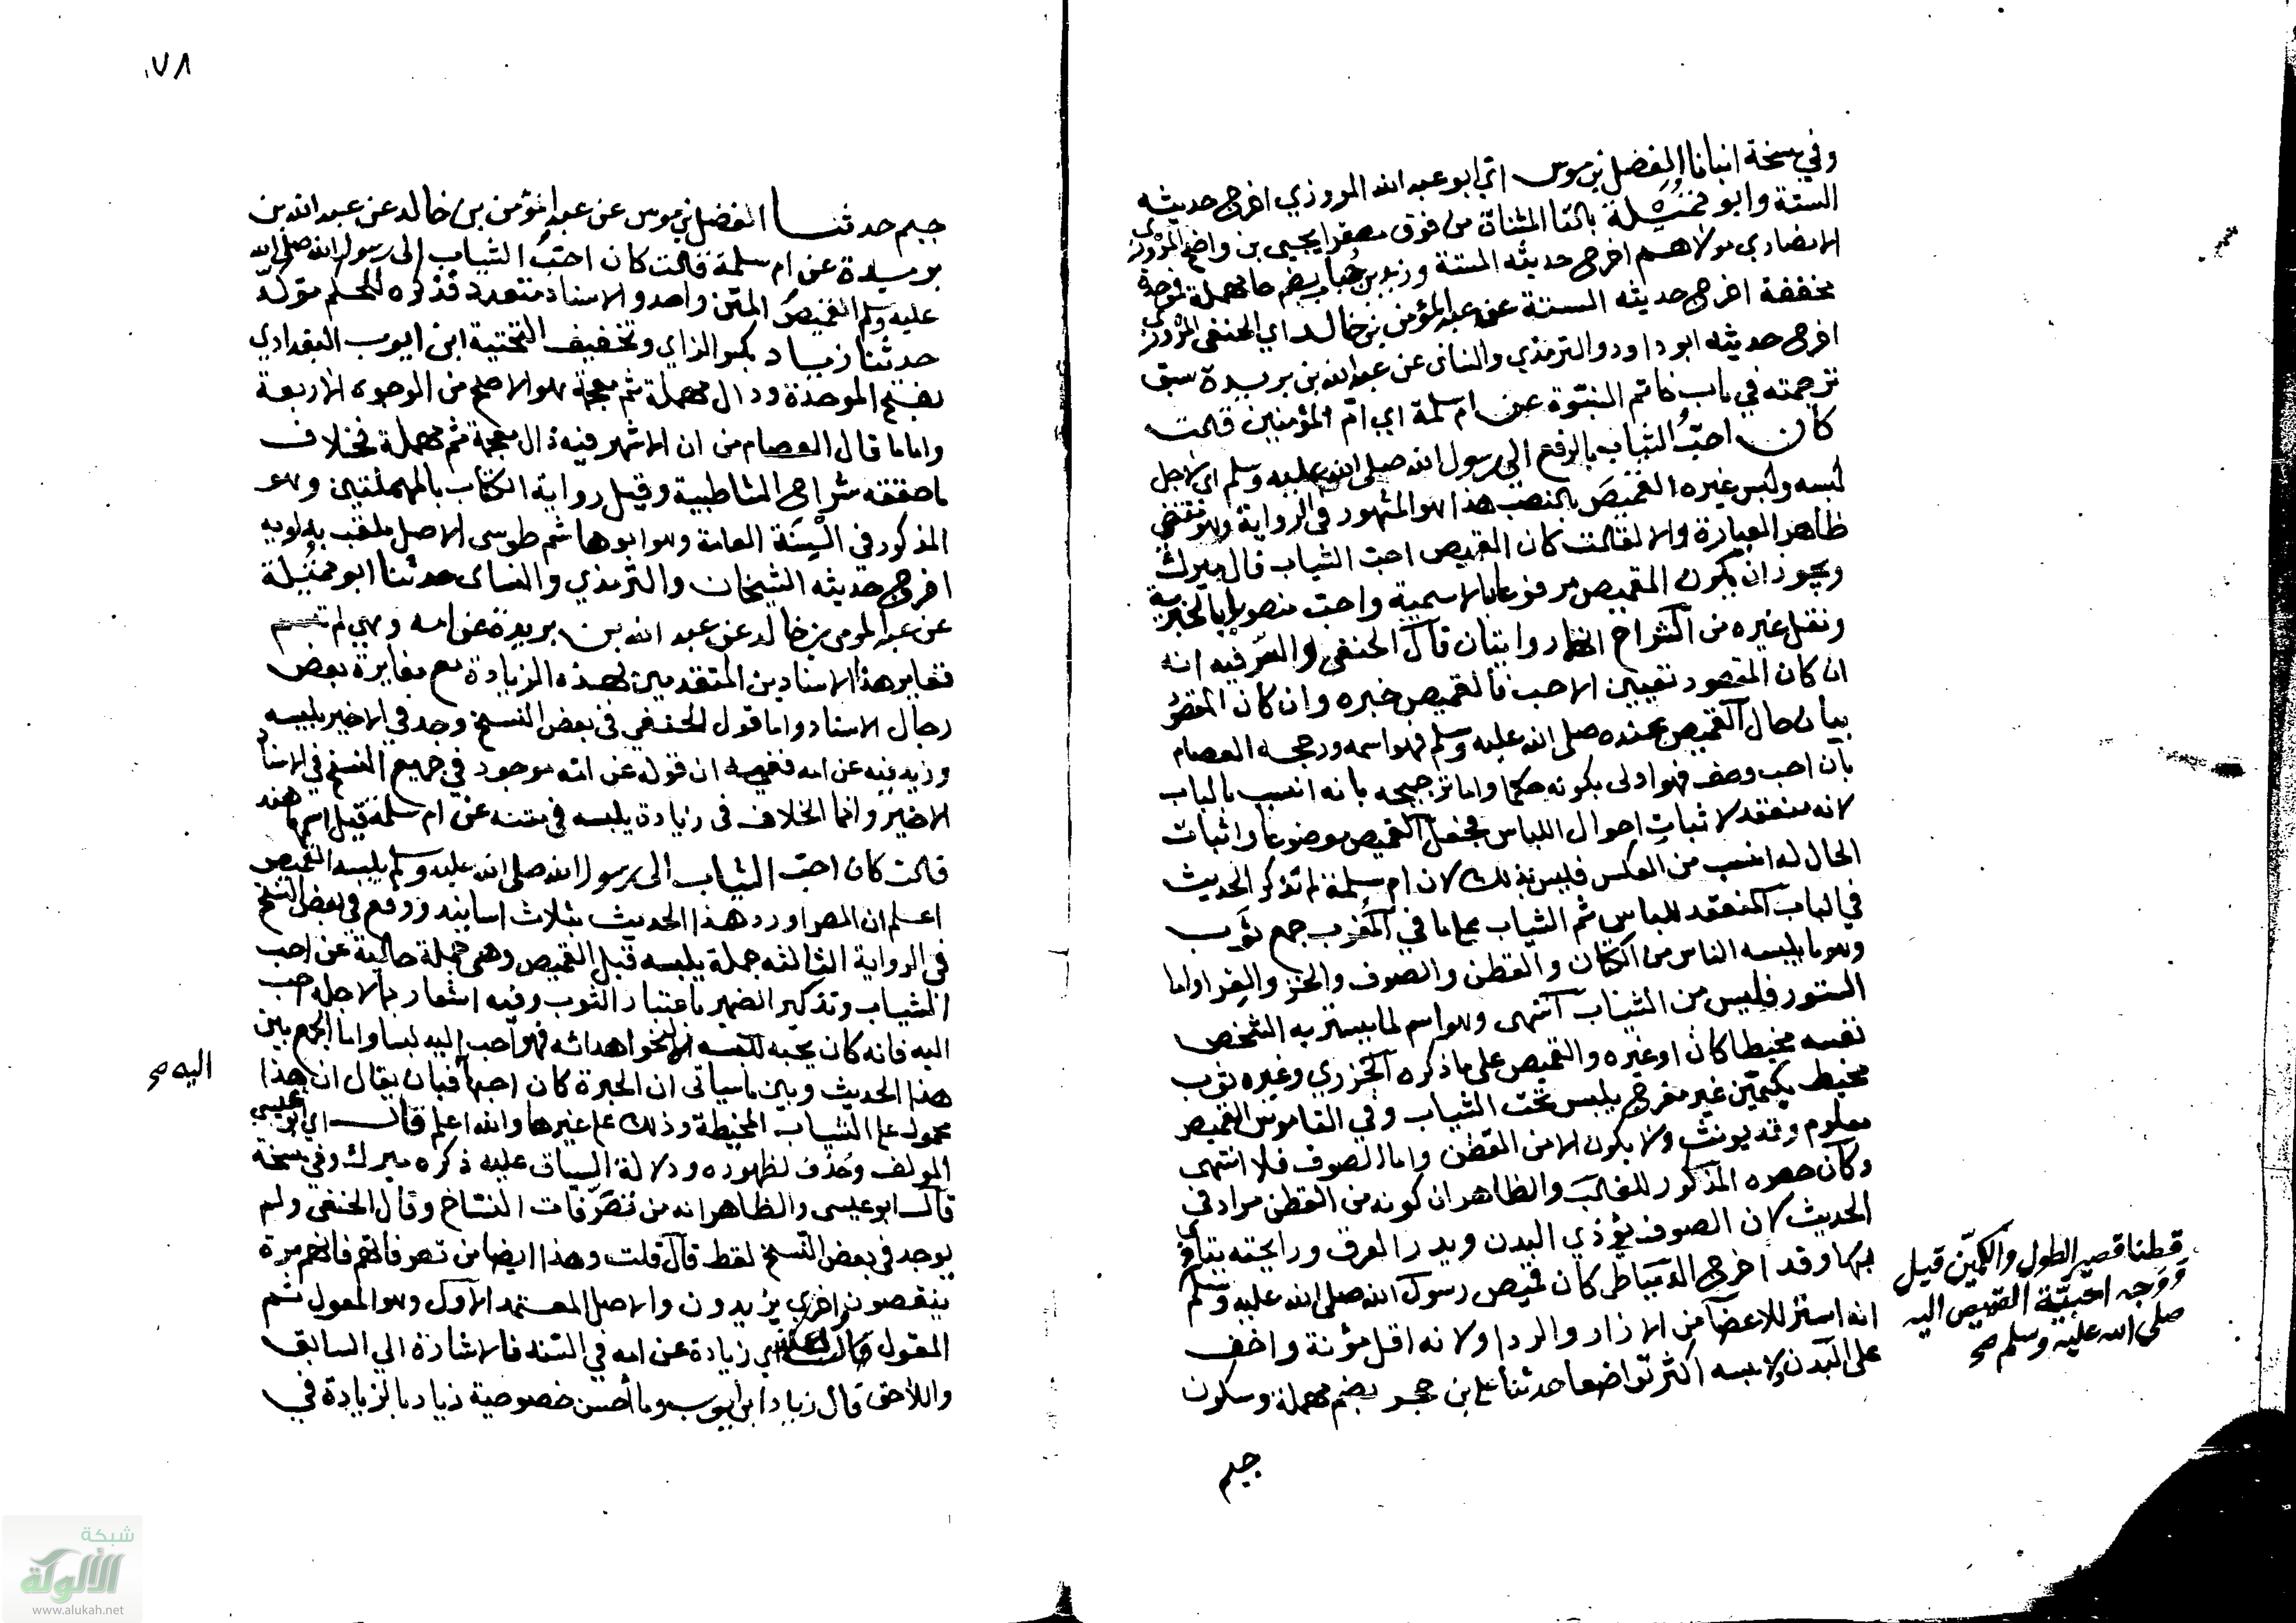 وفي نسخة انبانا الفضل بن موسى اي ابو عبد الله المروزي اخرج حديثه
الستة وابو تميلة بالتا المثناة من فوق مصغرا يحيى بن واضح المروزي
الانصاري مولاهم اخرج حديثه الستة وزيد بن حباب بضم حا مهملة فموحدة
مخففة اخرج حديثه الستة عن عبد المؤمن بن خالد اي الحنفي المروزي
اخرج حديثه ابو داود والترمذي والنسائي عن عبد الله بن بريدة سبق
ترجمته في باب خاتم النبوة عن ام سلمة اي ام المؤمنين قالت
كان احب الثياب بالرفع الى رسول الله صلى الله عليه وسلم اي لاجل
لبسه ولبس غيره القميص بالنصب هذا هو المشهور في الرواية وهو مقتضى
ظاهر العبارة والا لقالت كان القميص احب الثياب قال ميرك
ويجوز ان يكون القميص مرفوعا بالاسمية واحب منصوبا بالخبرية
ونقل غيره من الشراح انهما روايتان قال الحنفي والسر فيه انه
ان كان المقصود تعيين الاحب فالقميص خبره وان كان المقصود
بيان حال القميص عنده صلى الله عليه وسلم فهو اسمه ورجحه العصام
بان احب وصف فهو اولى بكونه حكما واما ترجيحه بانه انسب بالباب
لانه منعقد لاثبات احوال اللباس فجعل القميص موضوعا واثبات
الحال له انسب من العكس فليس بذلك لان ام سلمة لم تذكر الحديث
في الباب المنعقد للباس ثم الثياب على ما في المغرب جمع ثوب
وهو ما يلبسه الناس من الكتان والقطن والصوف والخز والفرا واما
الستور فليس من الثياب انتهى وهو اسم لما يستر به الشخص
نفسه مخيطا كان او غيره والقميص على ما ذكره الجزري وغيره ثوب
مخيط بكمين غير مفرج يلبس تحت الثياب وفي القاموس القميص
معلوم وقد يونث ولا يكون الا من القطن واما الصوف فلا انتهى
وكان حصره المذكور للغالب والظاهر ان كونه من القطن مراد في
الحديث لان الصوف يؤذي البدن ويدر العرق ورايحته يتاذى
بها وقد اخرج الدمياطي كان قميص رسول الله صلى الله عليه وسلم
انه استر للاعضا من الازار والردا ولانه اقل مؤنة واخف
على البدن ولابسه اكثر تواضعا حدثنا علي بن حجر بضم مهملة وسكون
جيم
قطنا قصير الطول والكمين قيل
ووجه احبية القميص اليه
صلى الله عليه وسلم صح
٧٨
جيم حدثنا الفضل بن موسى عن عبد المؤمن بن خالد عن عبد الله بن
بريدة عن ام سلمة قالت كان احب الثياب الى رسول الله صلى الله
عليه وسلم القميص المتن واحد والاسناد متعدد فذكره للحكم مؤكد
حدثنا زياد بكسر الزاي وتخفيف التحتية ابن ايوب البغدادي
بفتح الموحدة ودال مهملة ثم معجمة هو الاصح من الوجوه الاربعة
واما ما قال العصام من ان الاشهر فيه ذال معجمة ثم مهملة فخلاف
ما حققه شراح الشاطبية وقيل رواية الكتاب بالمهملتين وهو
المذكور في السنة العامة وهو ابو هاشم طوسي الاصل ملقب بدلويه
اخرج حديثه الشيخان والترمذي والنساى حدثنا ابو تميلة
عن عبد المومن بن خالد عن عبد الله بن بريدة عن امه وهي لم تسم
فتغاير هذا الاسنادين المتقدمين لهذه الزيادة مع مغايرة بعض
رجال الاسناد واما قول الحنفي في بعض النسخ وجد في الاخير يلبسه
وزيد فيه عن امه ففيه ان قوله عن امه موجود في جميع النسخ في الاسناد
الاخير وانما الخلاف في زيادة يلبسه في متنه عن ام سلمة قيل اسمها هند
قالت كان احب الثياب الى رسول الله صلى الله عليه وسلم يلبسه القميص
اعلم ان المصر اورد هذا الحديث بثلاث اسانيد ووقع في بعض النسخ
في الرواية الثالثه جملة يلبسه قبل القميص وهي جملة حالية عن احب
الثياب وتذكير الضمير باعتبار الثوب وفيه اشعار بما لاجله احب
اليه فانه كان يحبه للبسه لا لنحو اهدائه فهو احب اليه لبسا واما الجمع بين
هذا الحديث وبين ما سياتي ان الحبرة كان احبها فبان يقال ان هذا
محمول على الثياب المخيطة وذلك على غيرها والله اعلم قال اي ابو عيسى
المولف وحذف لظهوره ودلالة السياق عليه ذكره ميرك وفي نسخة
قال ابو عيسى والظاهر انه من تصرفات النساخ وقال الحنفي ولم
يوجد في بعض النسخ لفظ قال قلت وهذا ايضا من تصرفاتهم فانهم مرة
ينقصون واخرى يزيدون والاصل المعتمد الاول وهو المعول ثم
المقول اي زيادة عن امه في السند فالاشارة الى السابق
واللاحق قال زياد ابن ايوب وما احسن خصوصية زياد بالزيادة في
اليه صح
شبكة
الألوكة
www.alukah.net